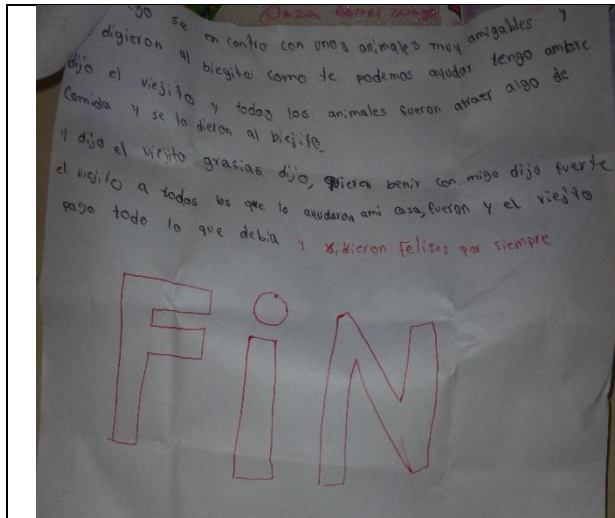 se en contro con unos animales muy amigables y
digieron al biegito como te podemos ayudar tengo ambre
dijo el viejito y todos los animales fueron atraer algo de
comida y se la dieron al biejito
y dijo el viejito grasias dijo, quieren benir con migo dijo fuerte
el viejito a todos los que lo ayudaron ami casa, fueron y el viejito
pago todo lo que debia y vivieron felises por siempre
FiN